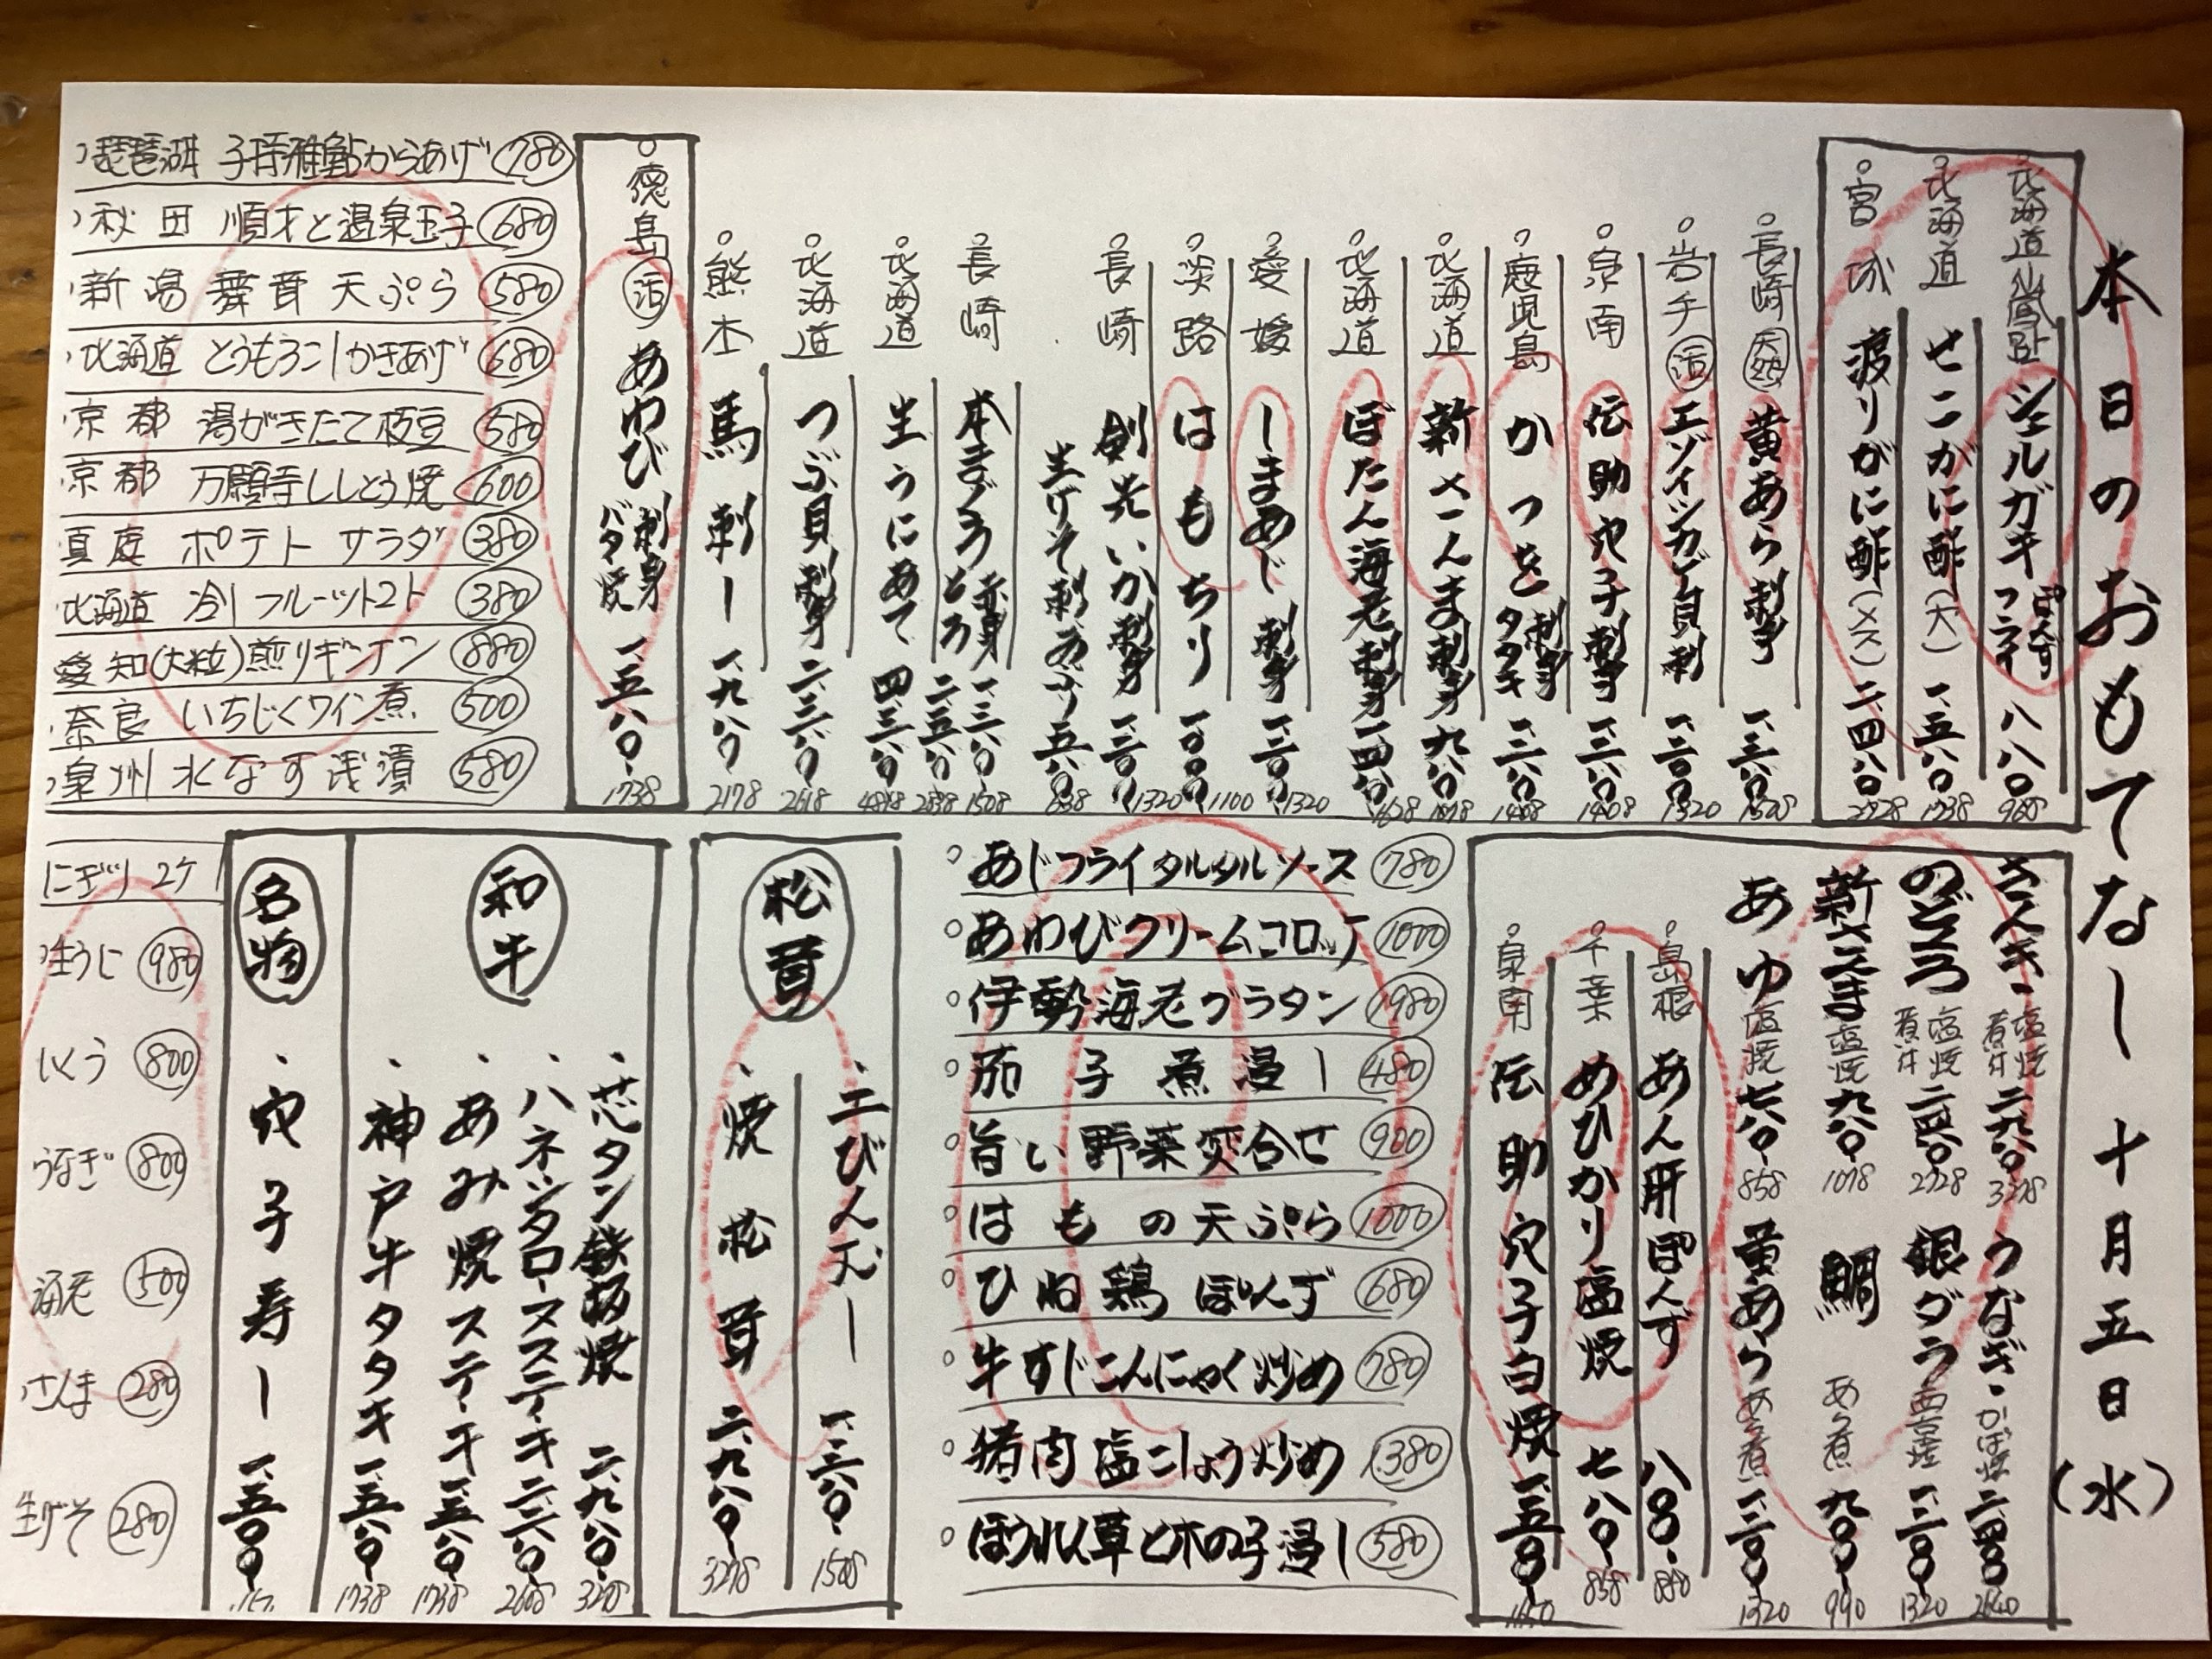 本日のおもてなし 十月五日(水)
北海道仙鳳趾 シェルガキ ぽんず フライ 八八〇 968
北海道 せこがに酢(大) 一、五八〇 1738
宮城 渡りがに酢(メス) 二、四八〇 2728
長崎 天然 黄あら刺身
岩手 活 エゾイシガゲ貝刺 一、二〇〇 1320
泉南 伝助穴子刺身 一、二八〇 1408
鹿児島 かつを 刺身 タタキ 一、二八〇 1408
北海道 新さんま刺身 九八〇 1078
北海道 ぼたん海老刺身 一、四八〇 1628
愛媛 しまあじ刺身 一、二〇〇 1320
淡路 はもちり 一、〇〇〇 1100
長崎 剣先いか刺身 一、二〇〇 1320
生げそ刺 五八〇 638
長崎 本まぐろ 赤身 とろ
北海道 生うにあて 四、三八〇 4818
北海道 つぶ貝刺身 二、三八〇 2618
熊本 馬刺し 一、九八〇 2178
徳島 活 あわび 刺身 バタ焼 一、五八〇 1738
琵琶湖 子持稚鮎からあげ 780
秋田 順才と温泉玉子 680
新潟 舞茸天ぷら 580
北海道 とうもろこしかきあげ 680
京都 湯がきたて枝豆 580
京都 万願寺ししとう焼 600
真庭 ポテトサラダ 380
北海道 冷しフルーツトマト 380
愛知(大粒)煎りギンナン 880
奈良 いちじくワイン煮 500
泉州 水なす浅漬 580
きんき 塩焼 煮付 二、九八〇 3278
うなぎ かば焼 二、四〇〇 2640
のどぐろ 塩焼 煮付 二、四八〇 2728
銀ダラ 西京焼 一、二〇〇 1320
新さんま 塩焼 九八〇 1078
鯛 あら煮 九〇〇 990
あゆ 塩焼 七八〇 858
黄あら あら煮 一、二〇〇 1320
島根 あん肝ぽんず 八〇〇 880
千葉 めひかり塩焼 七八〇 858
泉南 伝助穴子白焼 一、五〇〇 1650
あじフライタルタルソース 780
あわびクリームコロッケ 1000
伊勢海老グラタン 1980
茄子煮浸し 480
旨い野菜炊合せ 900
はもの天ぷら 1000
ひね鶏ぽんず 680
牛すじこんにゃく炒め 780
猪肉塩こしょう炒め 1380
ほうれん草と木の子浸し 580
松茸
土びんむし
焼松茸 二、九八〇 3278
和牛
芯タン鉄板焼 二、九八〇 3278
ハネシタロースステーキ
あみ焼ステーキ 一、五八〇 1738
神戸牛タタキ 一、五八〇 1738
名物
穴子寿し 一、五〇〇
にぎり 2ケ
生うに 980
いくら 800
うなぎ 800
海老 500
さんま 280
生げそ 280